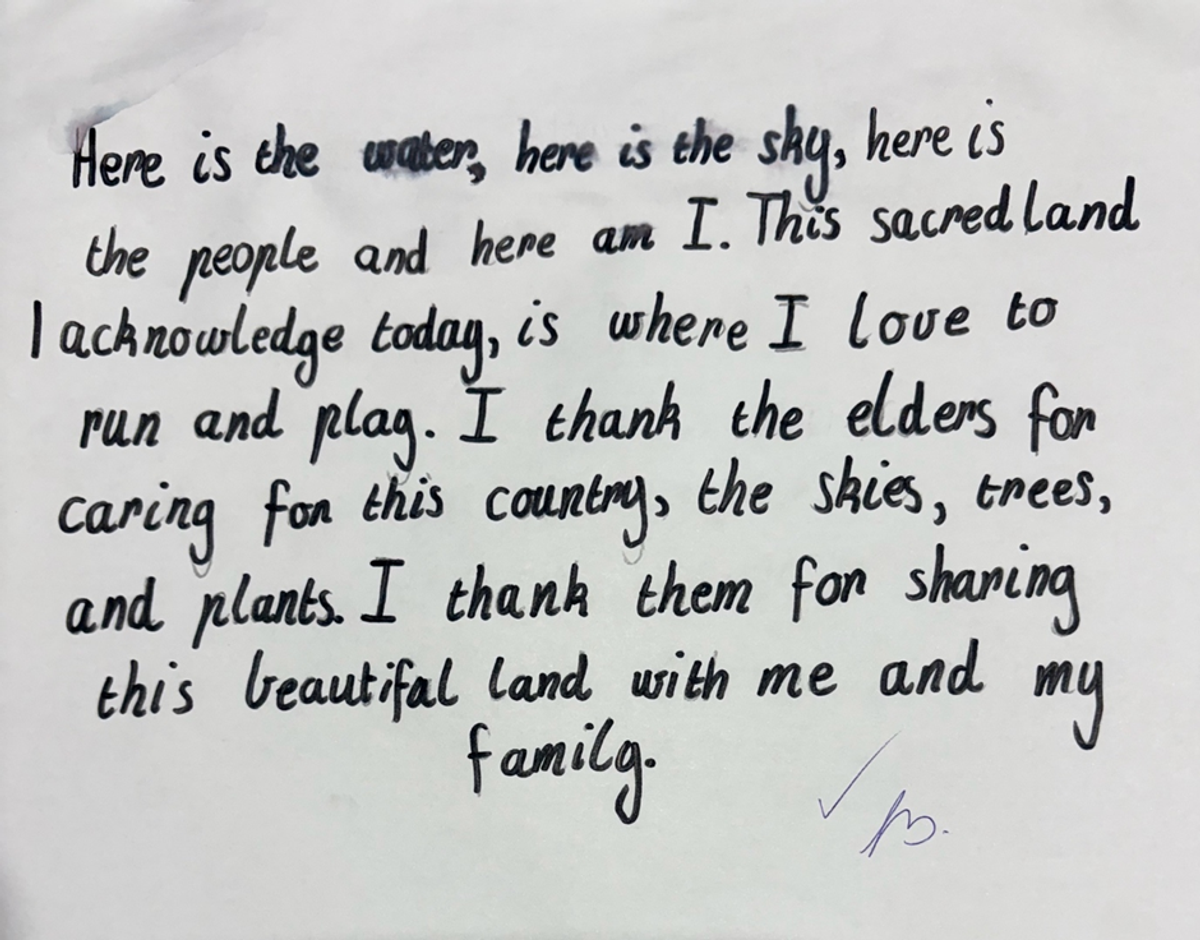 Here is the water, here is the sky, here is
the people and here am I. This sacred land
I acknowledge today, is where I love to
run and play. I thank the elders for
caring for this country, the skies, trees,
and plants. I thank them for sharing
this beautifal land with me and my
family.